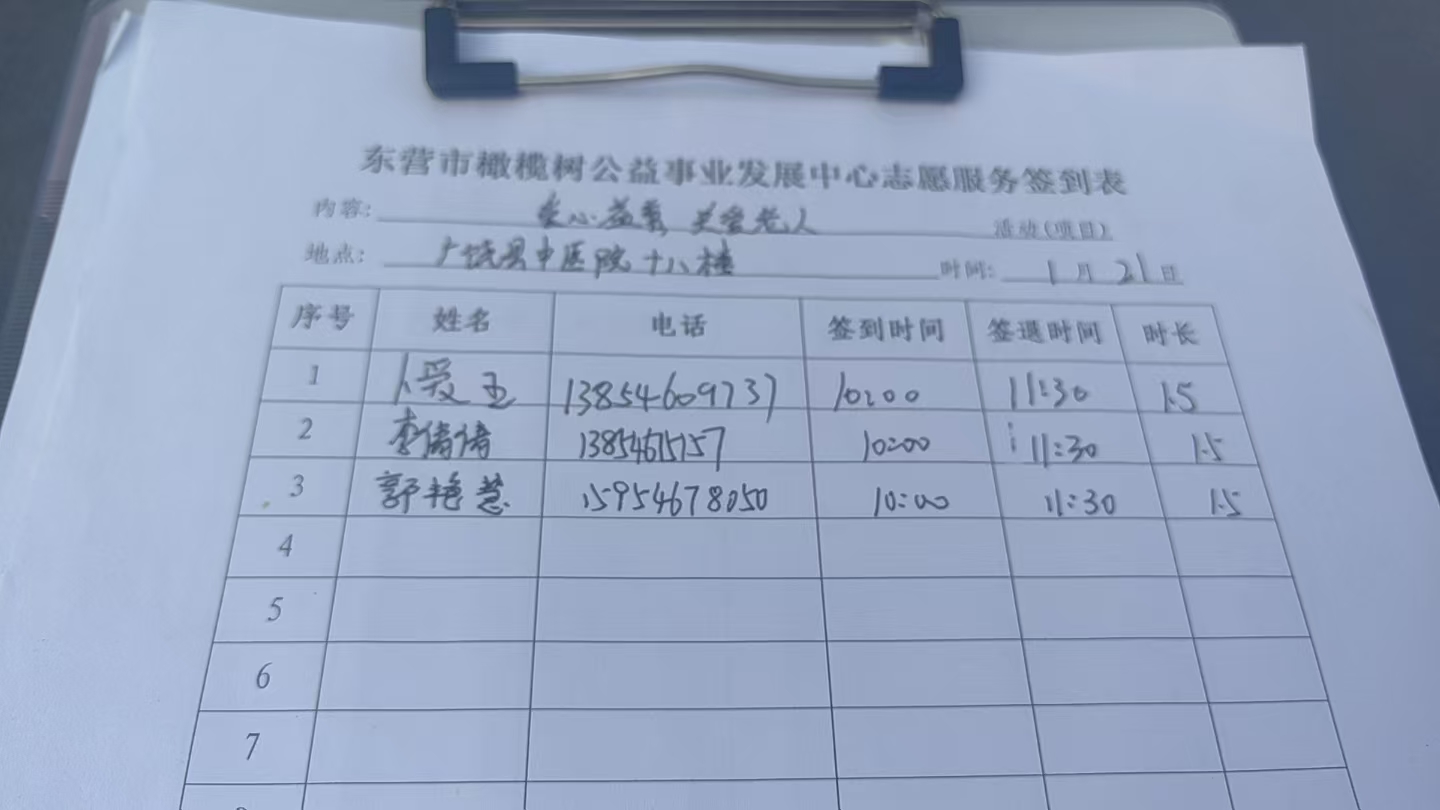 东营市橄榄树公益事业发展中心志愿服务签到表
内容: 爱心益剪 关爱老人 活动(项目)
地点: 广饶县中医院十八楼 时间: 1月21日
序号 姓名 电话 签到时间 签退时间 时长
1 卜爱玉 13854609737 10:00 11:30 1.5
2 李倩倩 10:00 11:30 1.5
3 郭艳慧 15954678050 10:00 11:30 1.5
4
5
6
7